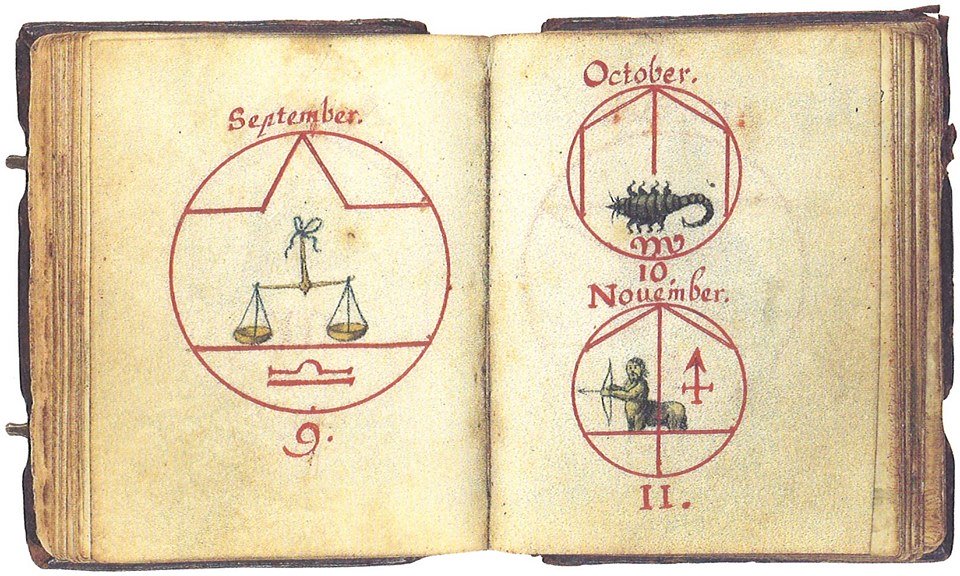 September.
9.
October.
10.
November.
11.